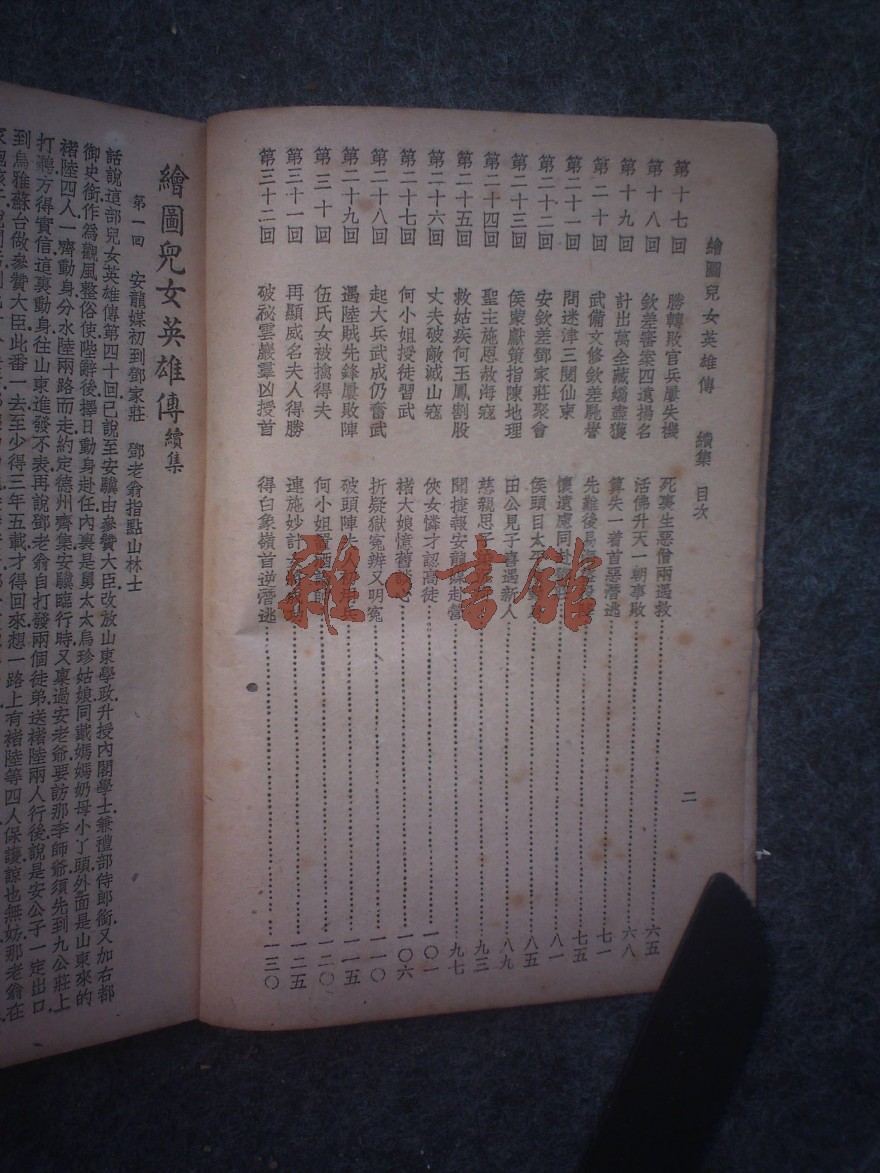 繪圖兒女英雄傳 續集 目次
二
第十七回 勝轉敗官兵屢失機 死裏生惡僧兩遇救 六五
第十八回 欽差審案四遠揚名 活佛升天一朝事敗 六八
第十九回 計出萬全藏嬌盡獲 算失一着首惡潛逃 七一
第二十回 武備文修欽差馳譽 先難後易 七五
第二十一回 問迷津三閱仙柬 懷遠慮同 八一
第二十二回 安欽差鄧家莊聚會 侯頭目太平 八五
第二十三回 侯蒙獻策指陳地理 田公見子喜遇新人 八九
第二十四回 聖主施恩赦海寇 慈親思子 九三
第二十五回 救姑疾何玉鳳割股 聞捷報安龍媒赴營 九七
第二十六回 丈夫破敵滅山寇 俠女憐才認高徒 一〇一
第二十七回 何小姐授徒習武 褚大娘憶舊 一〇六
第二十八回 起大兵武成仍奮武 折疑獄冤辨又明冤 一一〇
第二十九回 遇陸賊先鋒屢敗陣 破頭陣 一一五
第三十回 伍氏女被擒得夫 何小姐置酒 一二〇
第三十一回 再顯威名夫人得勝 連施妙計 一二五
第三十二回 破祕雲巖羣凶授首 得白象嶺首逆潛逃 一三〇
雜·書館
繪圖兒女英雄傳續集
第一回 安龍媒初到鄧家莊 鄧老翁指點山林士
話說這部兒女英雄傳第四十回已說至安驥由參贊大臣改放山東學政升授內閣學士兼禮部侍郎銜又加右都
御史銜作為觀風整俗使陛辭後擇日動身赴任內裏是舅太太烏珍姑娘同戴媽媽奶母小丫頭外面是山東來的
褚陸四人一齊動身分水陸兩路而走約定德州齊集安驥臨行時又稟過安老爺要訪那李師爺須先到九公莊上
打聽方得實信這裏動身往山東進發不表再說鄧老翁自打發兩個徒弟送褚陸兩人行後說是安公子一定出口
到烏雅蘇台做參贊大臣此番一去至少得三年五載才得回來想一路上有褚陸等四人保護諒也無妨那老翁在